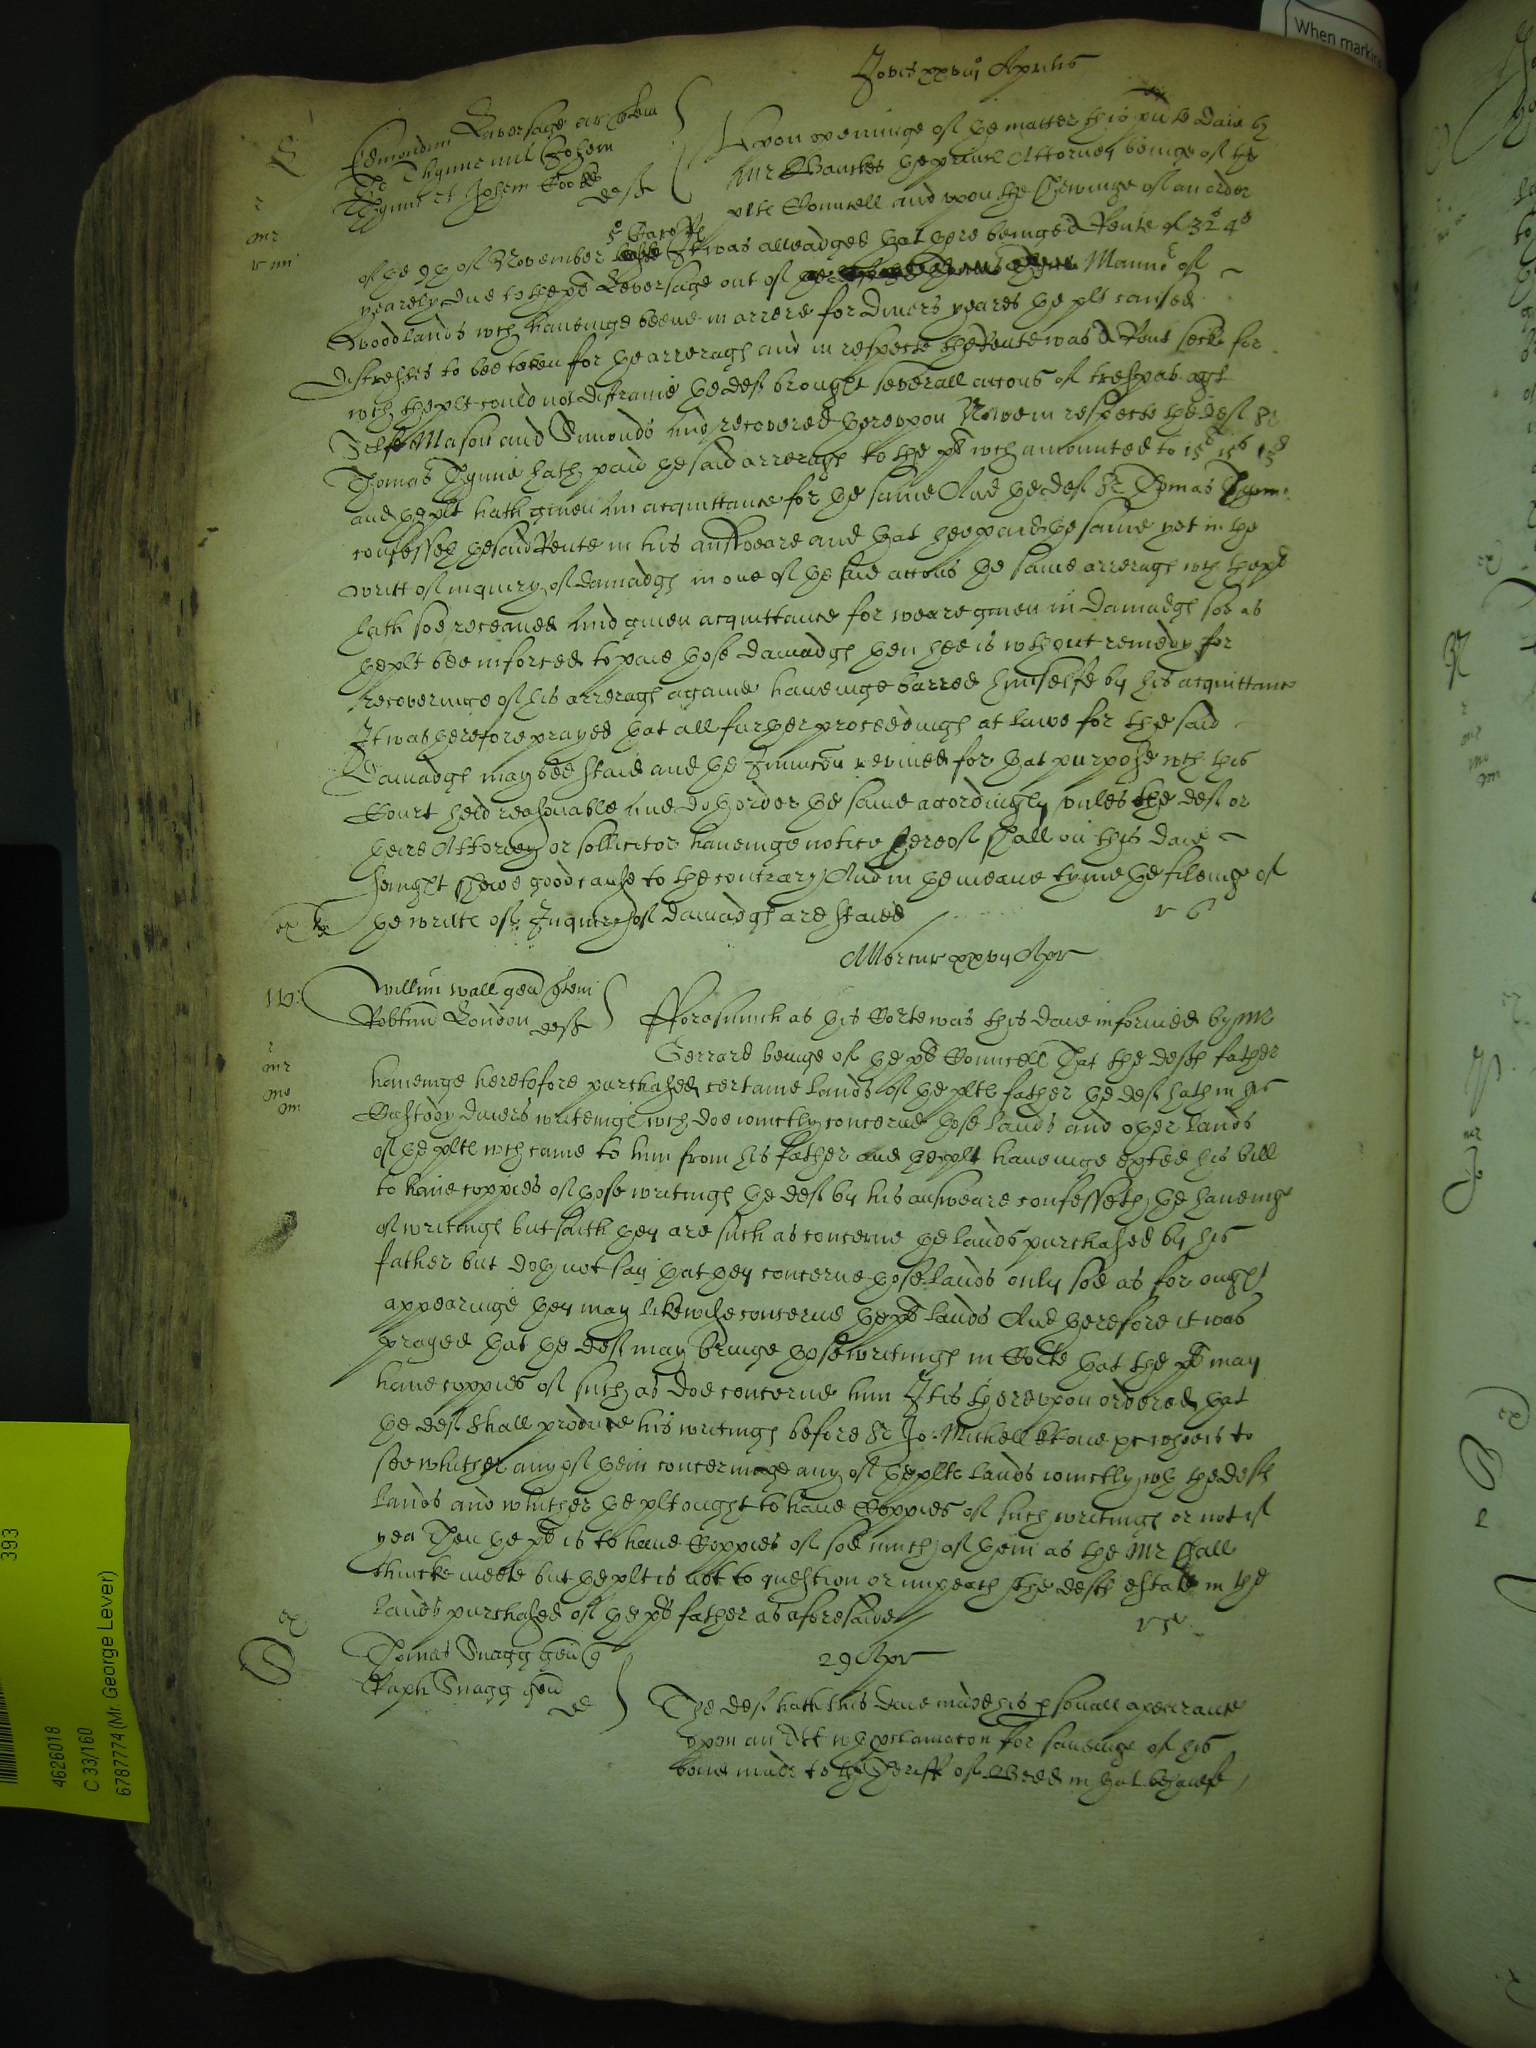 When markin
Jovis xxviij Aprilis
L
Edmondus Leversage ar quem
Tho Thynne mil Johem
Thynne et Johem Cooke
deftes
Upon openinge of the matter this pnte daie by
Mr Banckes the princes Attorney beinge of the
plts Councell and upon the shewinge of an order
of the 9th of November 5o Caroli It was alleadged that there beinge a Rente of 32s 4d
yearely due to the pl Leversage out of Mannor of
Woodlands wch haveinge beene in arrere for divers yeares the plt caused
distresses to bee taken for the arreragis and in respecte the Rente was a Rent secke for
wch the plt could not distraine the deft brought severall accons of trespas agt
Mason and Simonds and recovered thereupon Nowe in respecte the deft Sr
Thomas Thynne hath paid the said arreragis to the pl wch amounted to
and the plt hath given an acquittance for the same And the deft Sr Thomas Thynne
confesseth the said Rente in his answeare and that hee paid the same yet in the
writt of inquiry of damadgs in one of the said accons the same arreragis wch the pl
hath soe receaved and given acquittance for weare given in damadgs soe as
the plt bee inforced to paie those damadgs then hee is wthout remedy for
recoveringe of his arreragis againe haveinge barred himselfe by his acquittance
It was therefore prayed that all further proceedings at lawe for the said
Damadgs may bee staid and the Iniuncon revived for that purpose wch this
Court held reasonable and doth order the same accordingly unles the deft or
theire Attorney or sollicitor haveinge notice hereof shall on this daie
senight shewe good cause to the contrary And in the meane tyme the fileinge of
the writt of Inquirye of damadgs are staied
r 6
ex
Mercur xxvij Apr
W:
Willm Wall gen quem
Robtum London deft
Forasmuch as this Corte was this daie informed by Mr
Gerrard beinge of the pl Councell That the defts father
haveinge heretofore purchased certaine lands of the plts father the deft hath in his
Custody divers writeings wch doe ioinctly concerne those lands and other lands
of the plts wch came to him from his father and the plt haveinge exhted his bill
to have coppies of those writings the deft by his answeare confesseth the haveinge
of writings but saith they are such as concerne the lands purchased by his
father but doth not say that they concerne those lands only soe as for ought
appearinge they may likewise concerne the pl lands And therefore it was
prayed that the deft may bringe those writings in Corte that the pl may
have coppies of such as doe concerne him It is thereupon ordered that
the deft shall produce his writings before Sr Jo: Michell whoe is to
see whither any of them concerninge any of the plts lands ioinctly wth the defts
lands and whither the plt ought to have Coppies of such writings or not if
yea Then the pl is to have Coppies of soe much of them as the Mr shall
thincke meete but the plt is not to question or impeach the defts estate in the
lands purchased of the pls father as aforesaid
ex
S
Thomas Snagg gen q
Raph Snagg gen
de
29 Apr
The deft hath this daie made his psonall apearance
upon an Att wth proclamacon for saveinge of his
bond made to the Sheriff of Bedd in that behalfe
393
4626018
C 33/160
6787774 (Mr. George Lever)